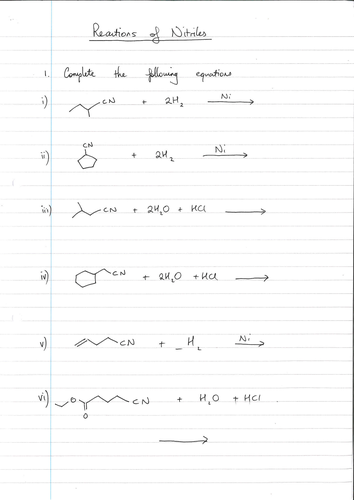 Reactions of Nitriles
1. Complete the following equations
i) CN + 2H2 Ni
ii) CN + 2H2 Ni
iii) CN + 2H2O + HCl
iv) CN + 2H2O + HCl
v) CN + _ H2 Ni
vi) O O CN + H2O + HCl